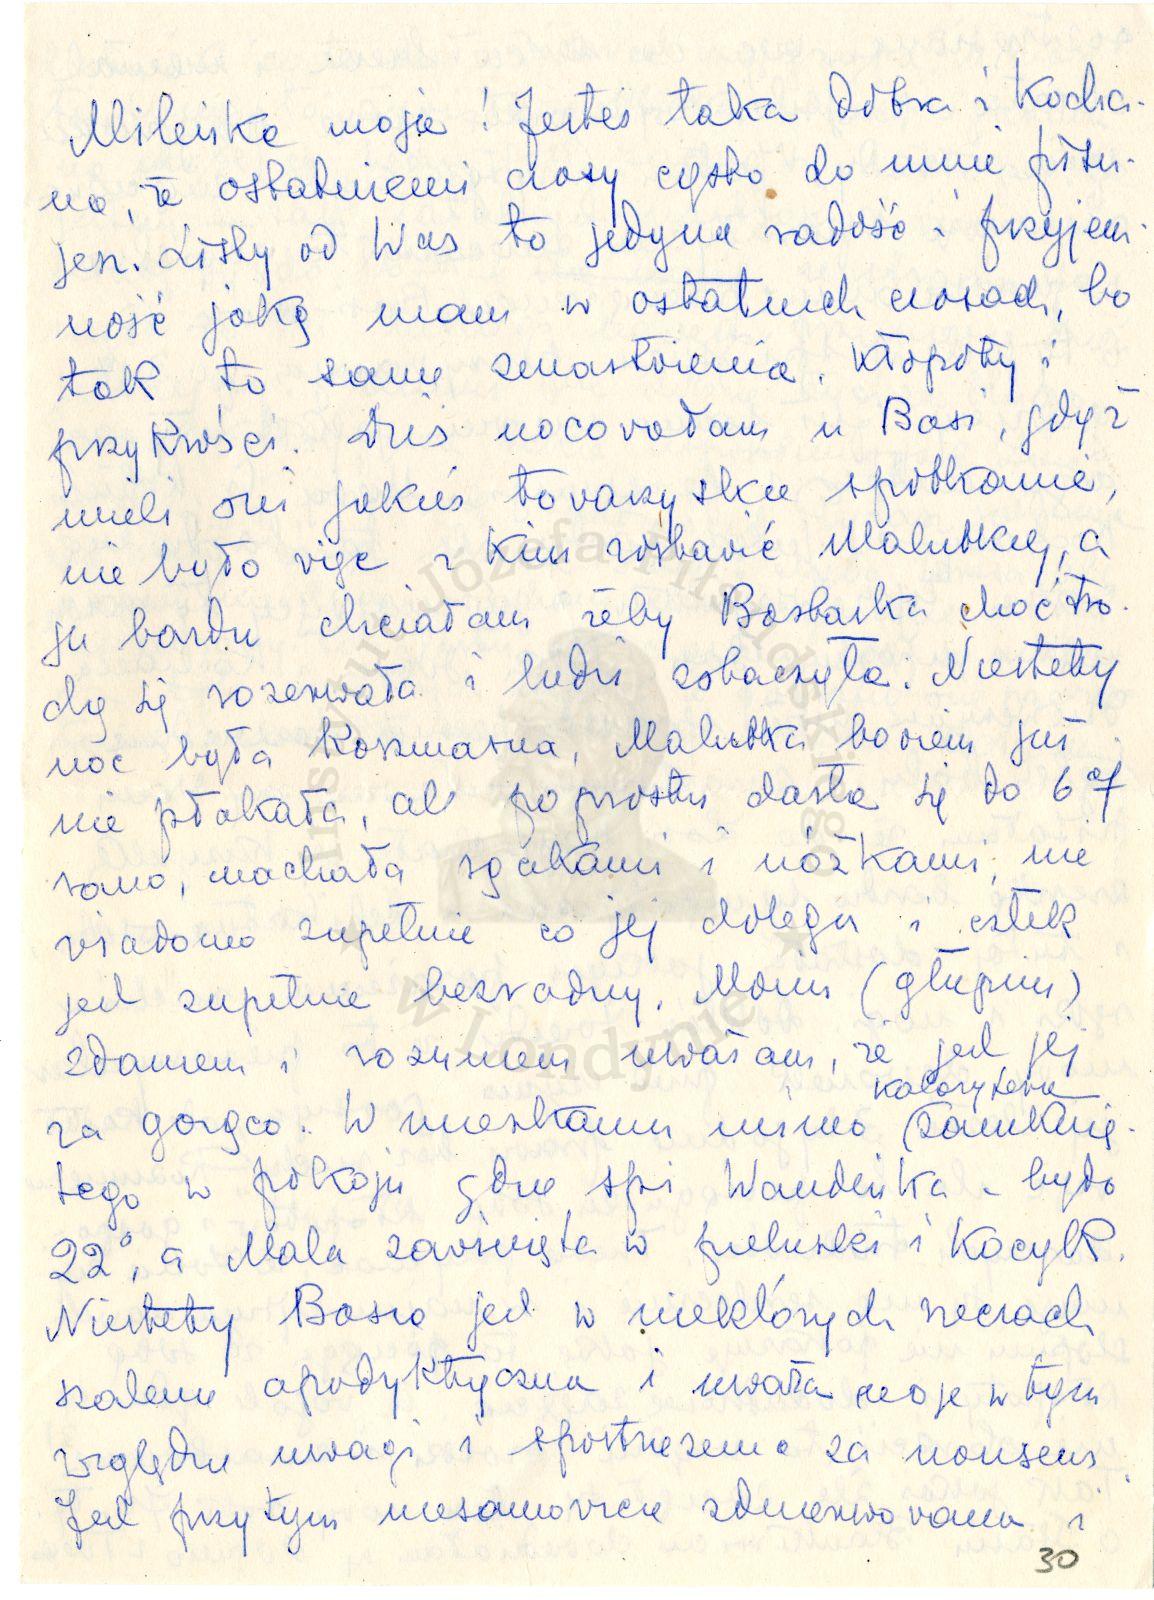 Mileńka moja! Jesteś taka dobra i kocha-
na, że ostatniemi czasy często do mnie pisu-
jesz. Listy od Was to jedyna radość i przyjem-
ność jaką mam w ostatnich czasach, bo
tak to same zmartwienia, kłopoty i
przykrości. Dziś nocowałam u Basi, gdyż
mieli oni jakieś towarzyskie spotkanie,
nie było więc z kim zostawić Malutkiej, a
ja bardzo chciałam żeby Basieńka choć tro-
chę się rozerwała i ludzi zobaczyła. Niestety
noc była koszmarna, Malutka bowiem już
nie płakała, ale po prostu darła się do 6ej
rano, machała rączkami i nóżkami, nie
wiadomo zupełnie co jej dolega i człek
jest zupełnie bezradny. Moim (głupim)
zdaniem i rozumem uważam, że jest jej
za gorąco. W mieszkaniu mimo kaloryfera zamknię-
tego w pokoju gdzie śpi Wandeńka - było
22°, a Mała zawinięta w pieluszki i kocyk.
Niestety Basia jest w niektórych rzeczach
szalenie apodyktyczna i uważa moje w tym
względzie uwagi i spostrzeżenia za nonsens.
Jest przytym niesamowicie zdenerwowana i
30
Instytut Józefa Piłsudskiego
w Londynie